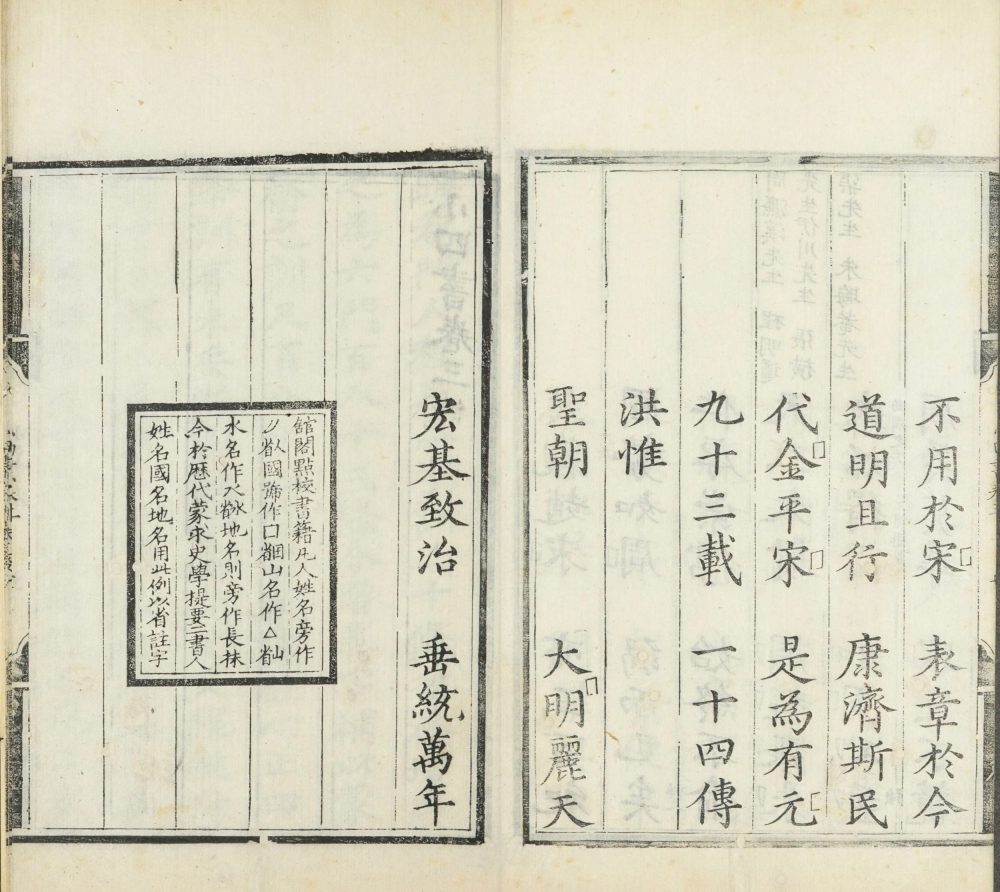 不用於宋 表章於今
道明且行 康濟斯民
代金平宋 是為有元
九十三載 一十四傳
洪惟
聖朝 大明麗天
宏基致治 垂統萬年
館閣點校書籍凡人姓名旁作
國號作囗山名作△
水名作地名則旁作長抹
今於歷代蒙求史學提要二書人
姓名國名地名用此例以省註字